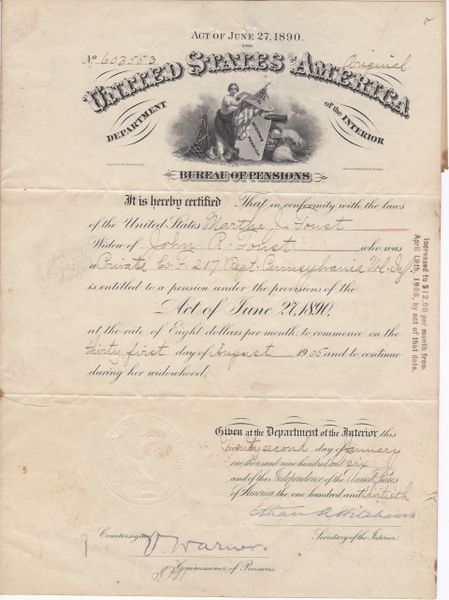 Act of June 27, 1890.
No. 603553
Original
United States of America
Department of the Interior
Bureau of Pensions
It is hereby certified That in conformity with the laws
of the United States Martha J. Foust
Widow of John R. Foust who was
a Private Co. F. 207 Regt. Pennsylvania Vol. Inf.
is entitled to a pension under the provisions of the
Act of June 27, 1890.
at the rate of Eight dollars per month, to commence on the
thirty first day of August 1905 and to continue
during her widowhood.
Increased to $12.00 per month from
April 19th, 1908, by act of that date.
Given at the Department of the Interior this
twenty second day of January
one thousand nine hundred and six
and of the Independence of the United States
of America the one hundred and thirtieth
Ethan A. Hitchcock
Secretary of the Interior.
Countersigned
V. Warner
Commissioner of Pensions.